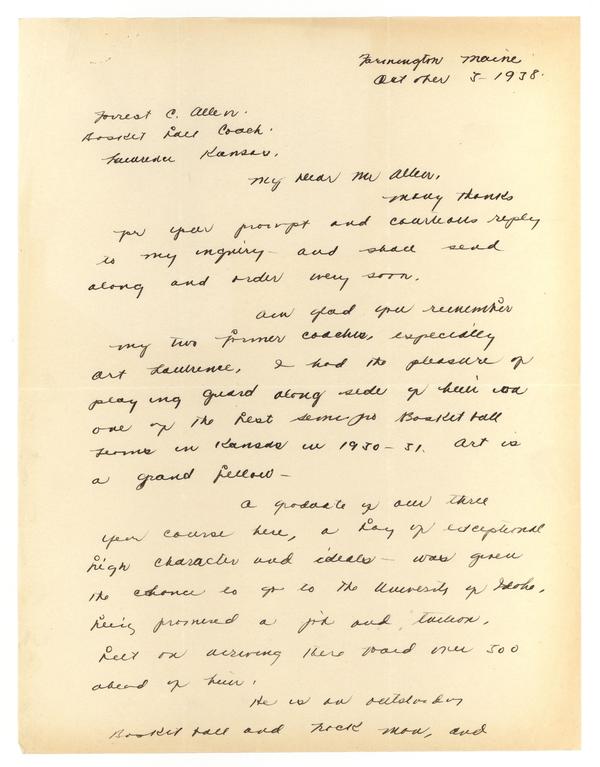 Farmington Maine
October 3-1938.
Forrest C. Allen.
Basket Ball Coach.
Lawrence Kansas.
My Dear Mr Allen,
Many thanks
for your prompt and courteous reply
to my inquiry - and shall send
along and order very soon.
Am glad you remember
my two former coaches, especially
Art Lawrence, I had the pleasure of
playing guard along side of him on
one of the best semi-pro Basket ball
teams in Kansas in 1930-31. Art is
a grand fellow -
A graduate of our three
year course here, a boy of exceptional
high character and ideals - was given
the chance to go to the University of Idaho,
being promised a job and tuition,
but on arriving there found over 500
ahead of him.
He is an outstanding
Basket ball and track man, and